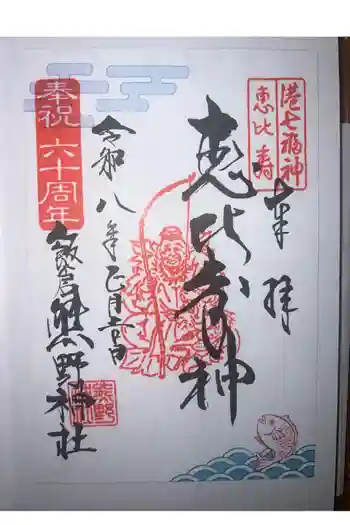 港七福神
恵比寿
奉拝
恵比寿神
令和八年一月六日
奉祝 六十周年
飯倉熊野神社
熊野